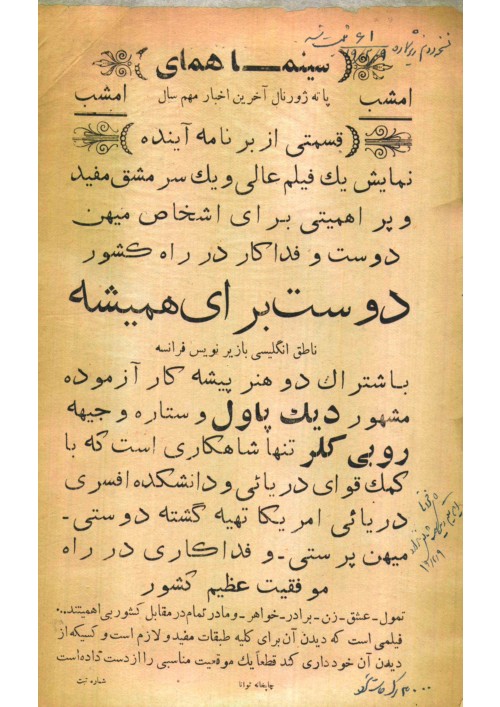 سینما همای
امشب
پاته ژورنال آخرین اخبار مهم سال
امشب
قسمتی از برنامه آینده
نمایش یك فیلم عالی و یك سر مشق مفید
و پر اهمیتی برای اشخاص میهن
دوست و فداكار در راه كشور
دوست برای همیشه
ناطق انگلیسی با زیر نویس فرانسه
باشتراك دو هنر پیشه كار آزموده
مشهور دیك پاول و ستاره وجیهه
روبی كلر تنها شاهكاری است كه با
كمك قوای دریائی و دانشكده افسری
دریائی امریكا تهیه گشته دوستی-
میهن پرستی-و فداكاری در راه
موفقیت عظیم كشور
تمول-عشق-زن-برادر-خواهر-ومادر تمام در مقابل كشور بی اهمیتند...
فیلمی است كه دیدن آن برای كلیه طبقات مفید و لازم است و كسیكه از
دیدن آن خودداری كند قطعاً یك موقعیت مناسبی را از دست داده است
چاپخانه توانا
شماره ثبت